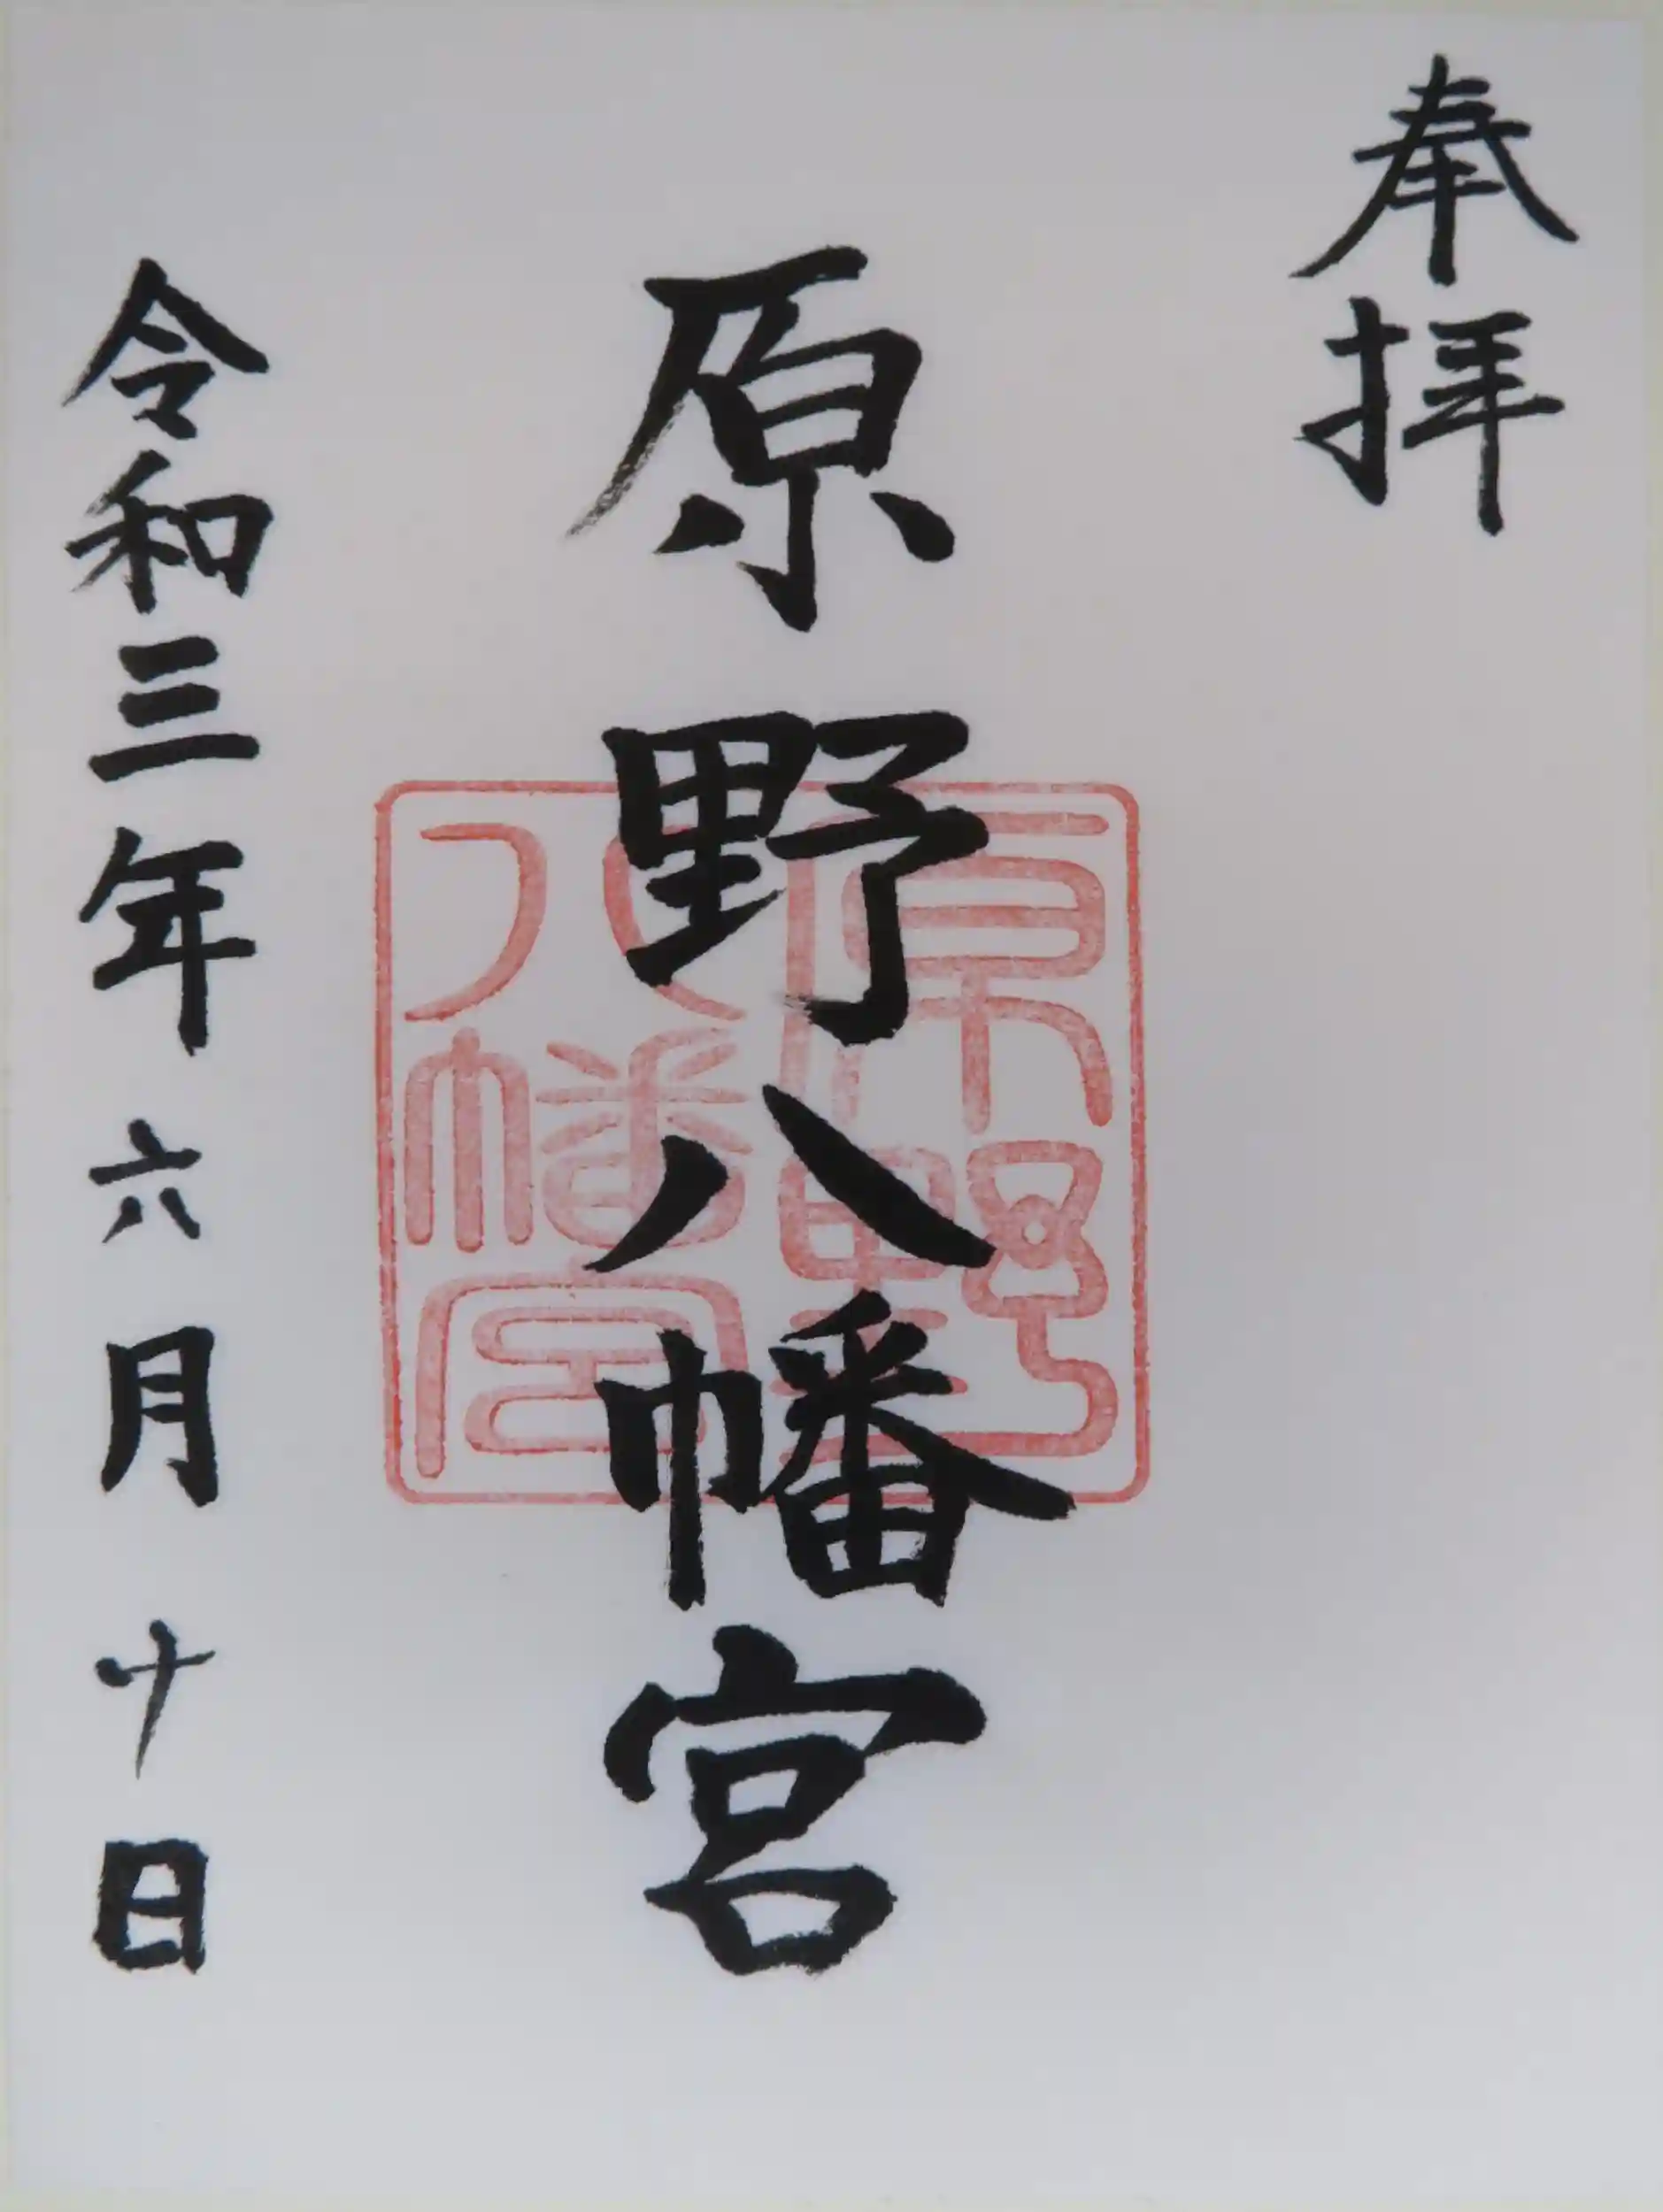 奉拝
原野八幡宮
原野
八幡宮
令和三年六月十日